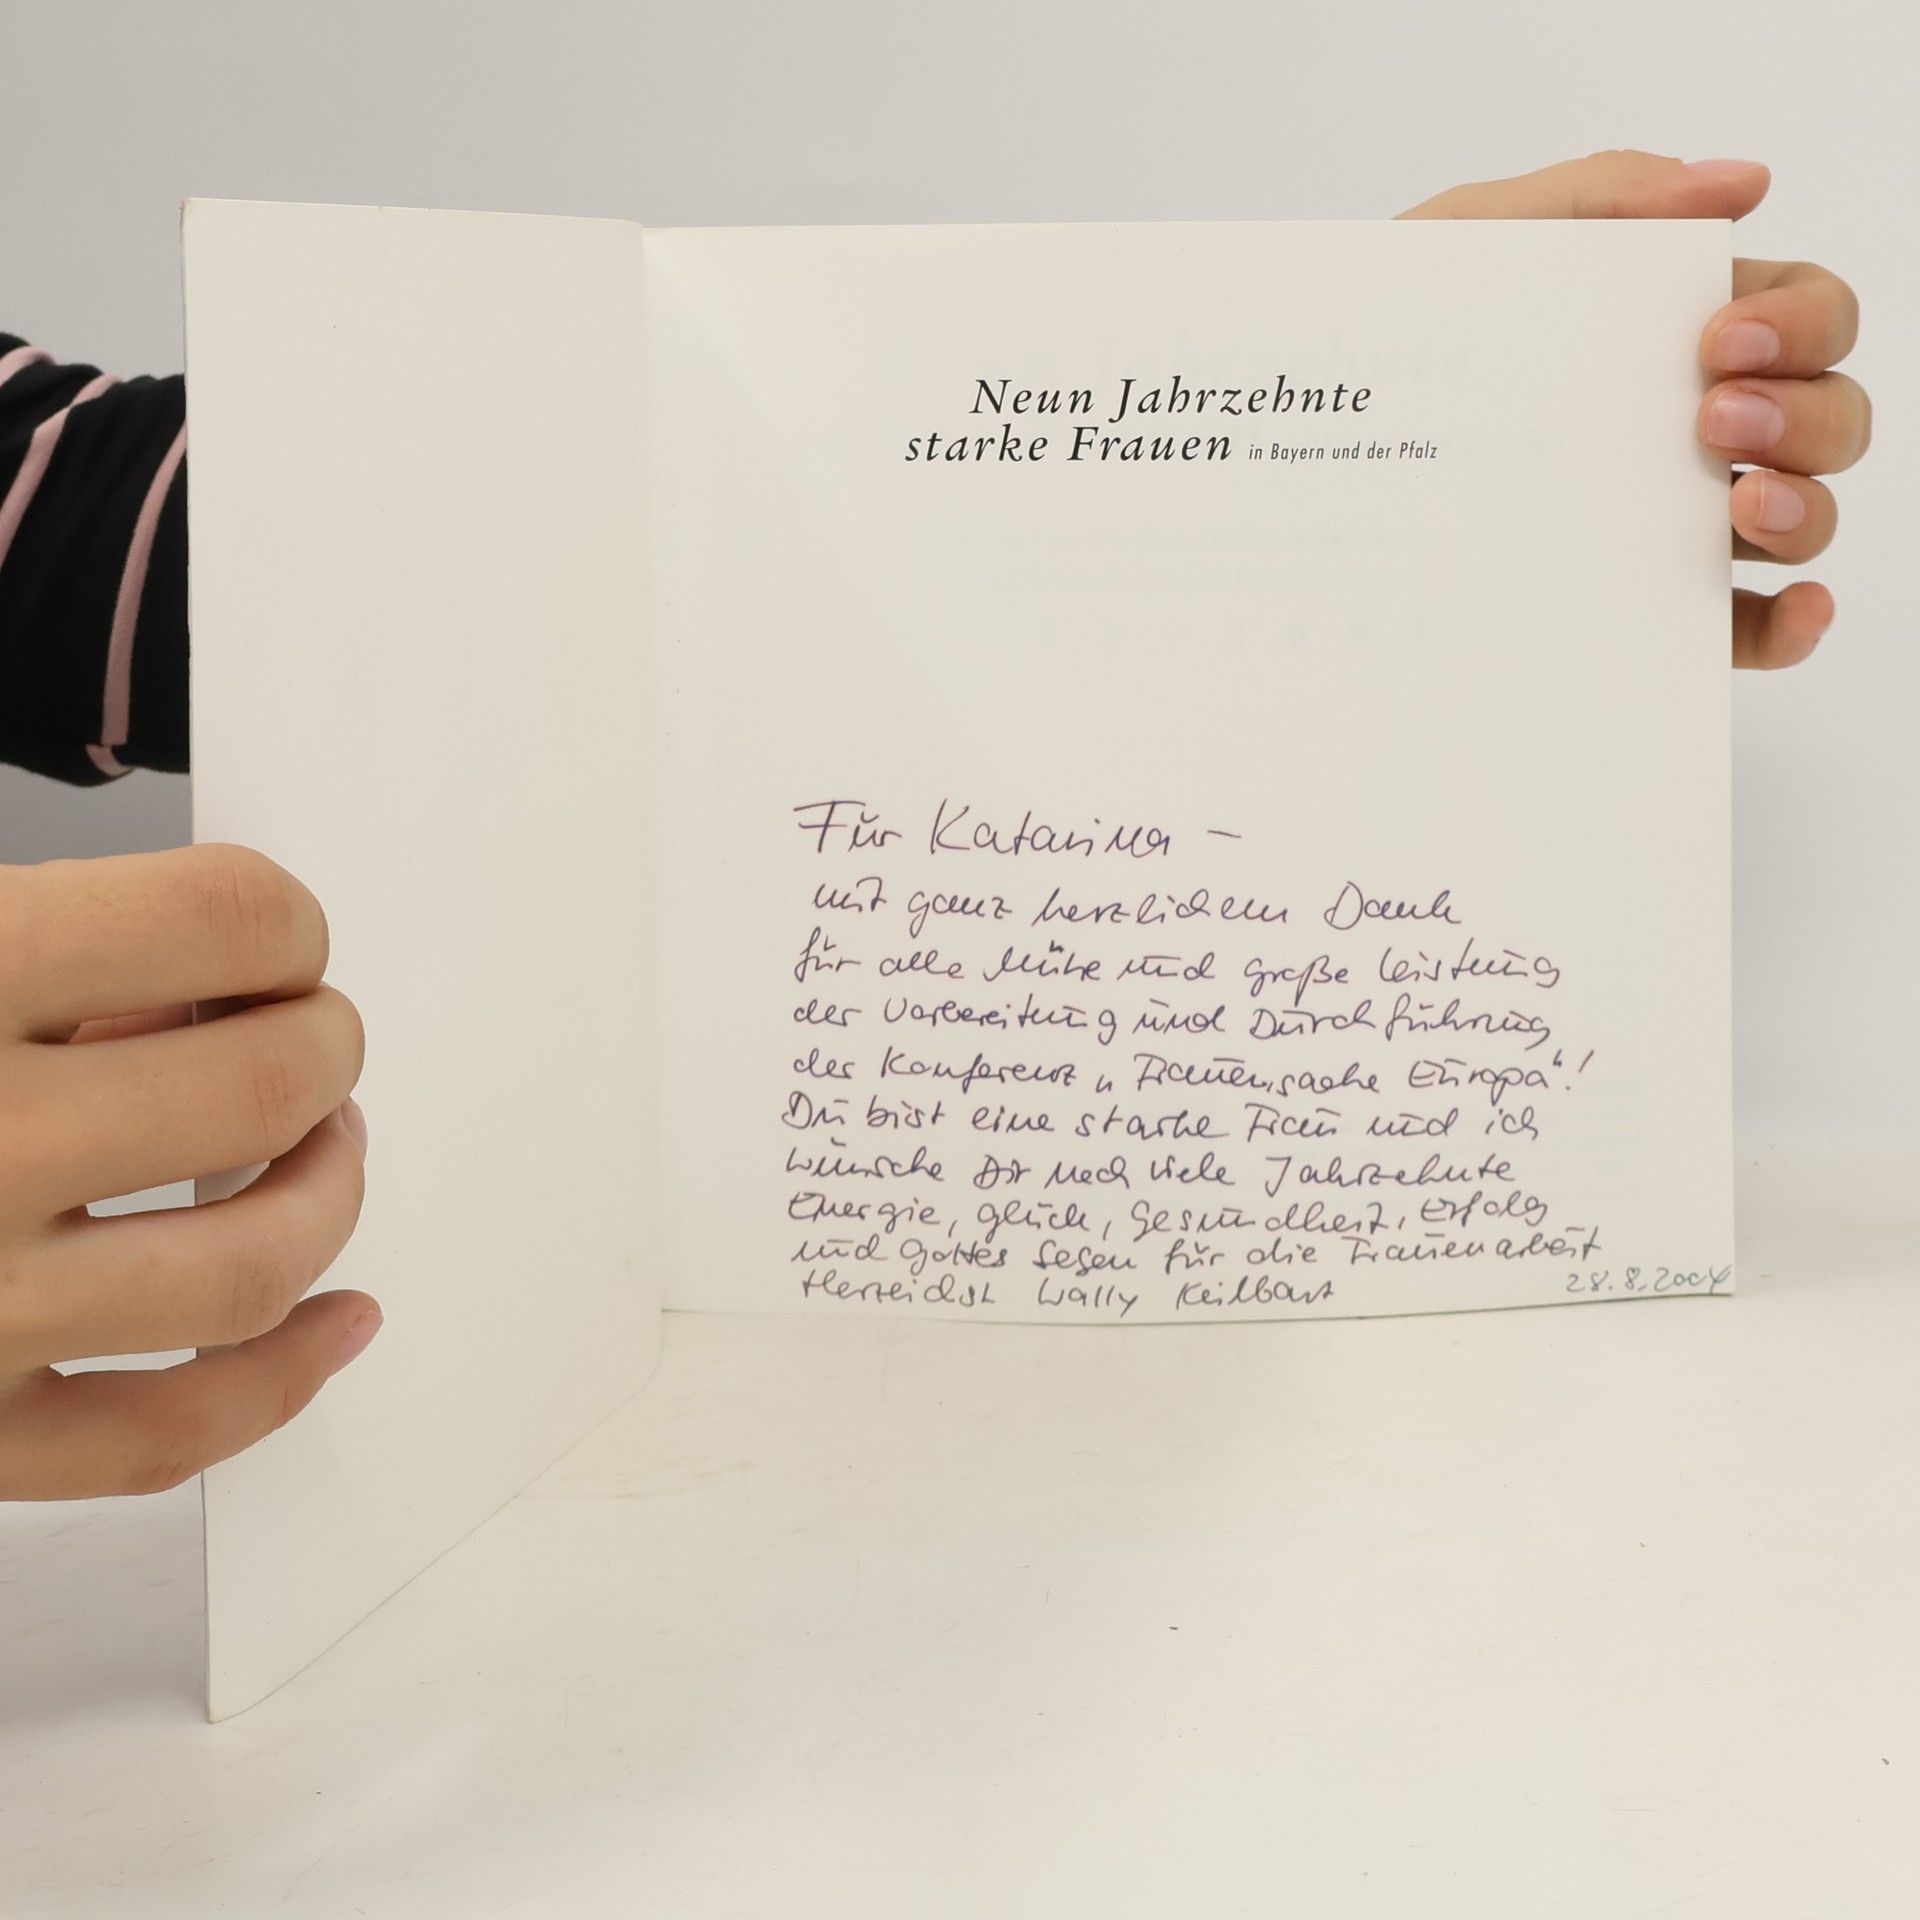 Neun Jahrzehnte
starke Frauen in Bayern und der Pfalz
Für Katarina –
mit ganz herzlichem Dank
für alle Mühe und große Leistung
der Vorbereitung und Durchführung
der Konferenz „Frauensache Europa“!
Du bist eine starke Frau und ich
wünsche Dir noch viele Jahrzehnte
Energie, Glück, Gesundheit, Erfolg
und Gottes Segen für die Frauenarbeit
Herzlichst Wally Keilbart
28.8.2004